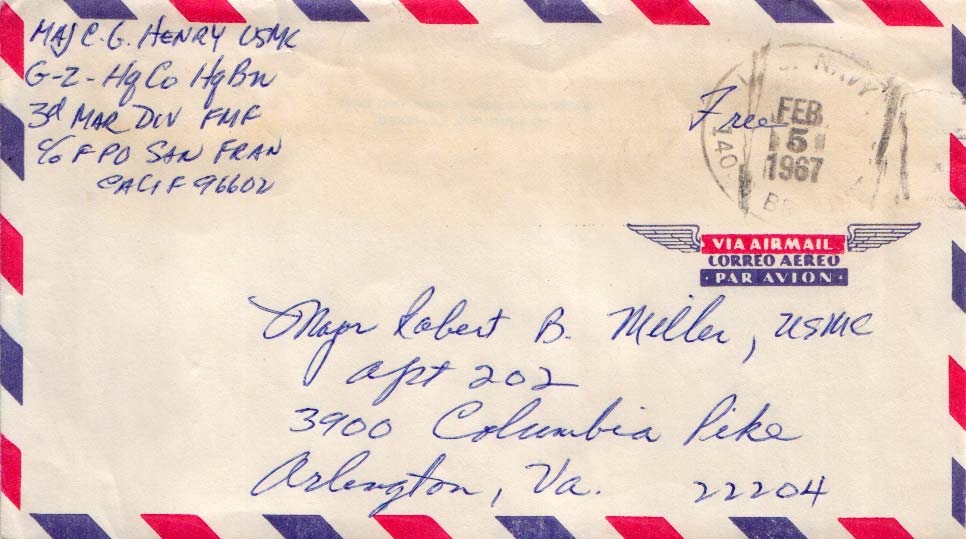 MAJ C. G. HENRY USMC
G-2 - HqCo HqBn
3d MAR DIV FMF
c/o FPO SAN FRAN
CALIF 96602
Free
U.S. NAVY
FEB
5
1967
140
VIA AIRMAIL
CORREO AEREO
· PAR AVION ·
Major Robert B. Miller, USMC
Apt 202
3900 Columbia Pike
Arlington, Va. 22204